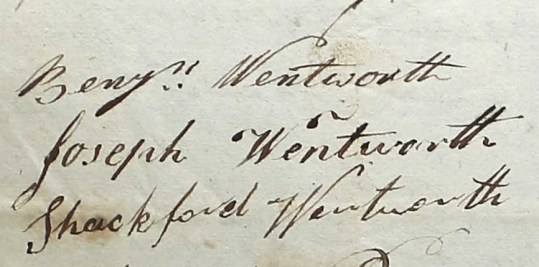 Benjn Wentworth
Joseph Wentworth
Shackford Wentworth